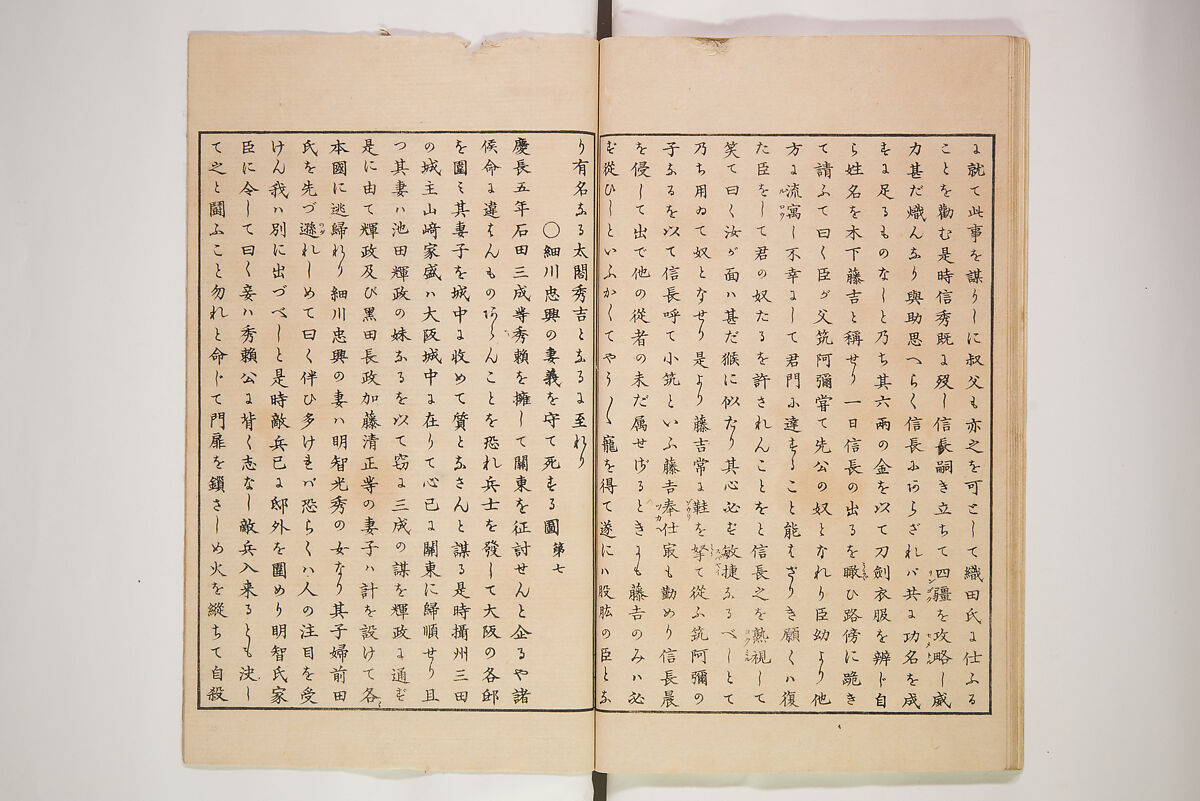 に就て此事を謀りしに叔父も亦之を可として織田氏に仕ふる
ことを勸む是時信秀既に歿し信長嗣き立ちて四疆を攻略し威
力甚だ熾んなり與助思へらく信長にあらざれバ共に功名を成
すに足るものなしと乃ち其六兩の金を以て刀劍衣服を辨じ自
ら姓名を木下藤吉と稱せり一日信長の出るを瞰ひ路傍に跪き
て請ふて曰く臣が父筑阿彌甞て先公の奴となれり臣幼より他
方に流寓し不幸にして君門に達すること能はざりき願くハ復
た臣をして君の奴たるを許されんことをと信長之を熟視して
笑て曰く汝が面ハ甚だ猴に似たり其心必ず敏捷なるべしとて
乃ち用ゐて奴となせり是より藤吉常に鞋を拏て從ふ筑阿彌の
子なるを以て信長呼て小筑といふ藤吉奉仕㝡も勤めり信長晨
を侵して出で他の從者の未だ属せざるときにも藤吉のみハ必
ず從ひしといふかくてやう〱寵を得て遂にハ股肱の臣とな
り有名なる太閤秀吉となるに至れり
〇細川忠興の妻義を守て死する圖 第七
慶長五年石田三成等秀頼を擁して關東を征討せんと企るや諸
侯命に違はんものあらんことを恐れ兵士を發して大阪の各邸
を圍ミ其妻子を城中に收めて質となさんと謀る是時攝州三田
の城主山﨑家盛ハ大阪城中に在りて心已に關東に歸順せり且
つ其妻ハ池田輝政の妹なるを以て窃に三成の謀を輝政に通ず
是に由て輝政及び黒田長政加藤清正等の妻子ハ計を設けて各
本國に逃歸れり細川忠興の妻ハ明智光秀の女なり其子婦前田
氏を先づ遯れしめて曰く伴ひ多けれバ恐らくハ人の注目を受
けん我ハ別に出づべしと是時敵兵已に邸外を圍めり明智氏家
臣に令して曰く妾ハ秀頼公に背く志なし敵兵入来るとも决し
て之と鬪ふこと勿れと命じて門扉を鎖さしめ火を縱ちて自殺